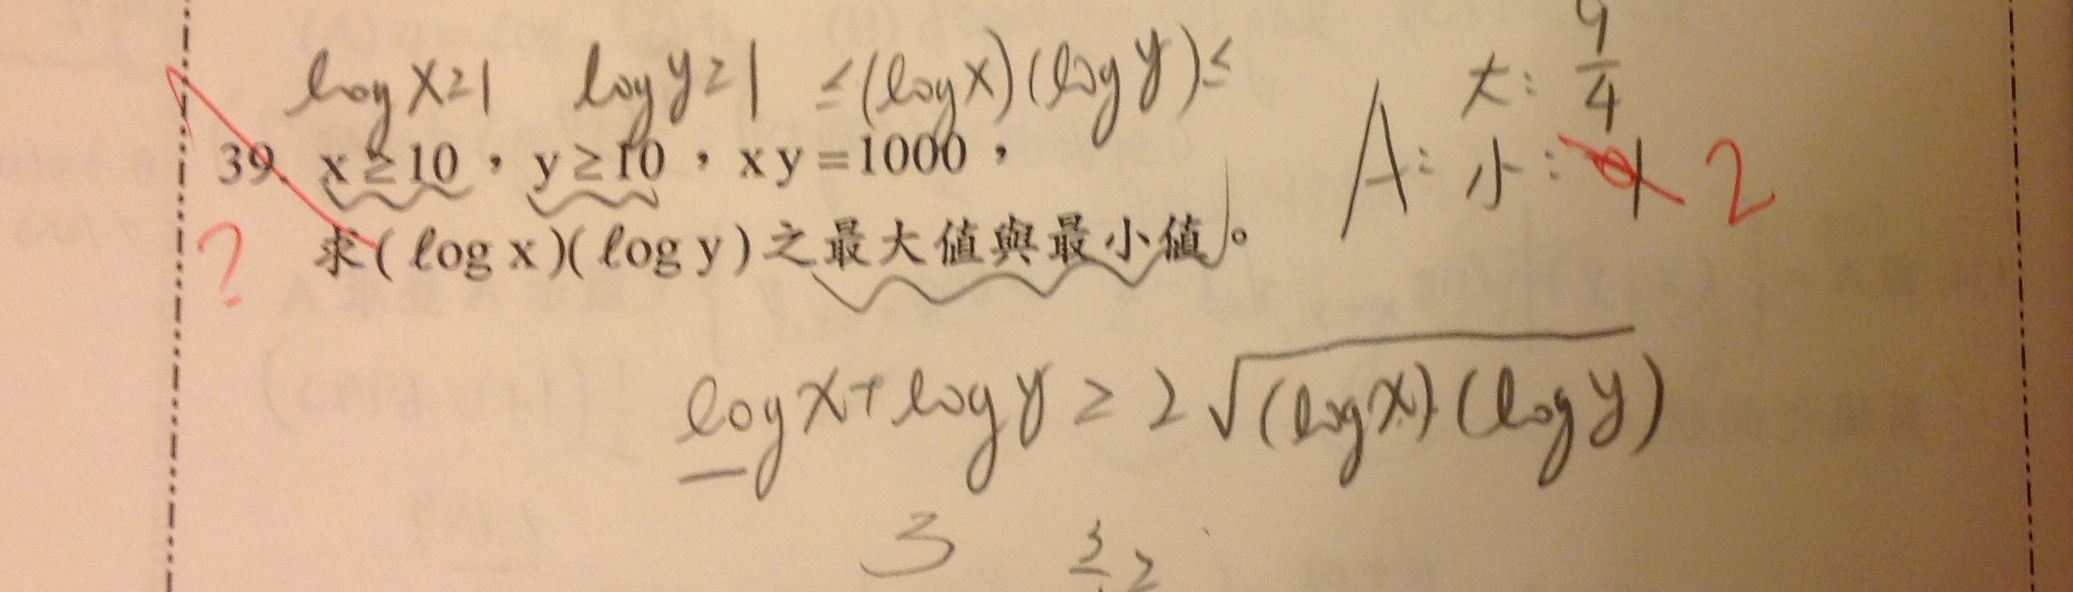 log x≥1 log y≥1 ≤(log x)(log y)≤
39. x≥10,y≥10,xy=1000,
求(ℓog x)(ℓog y)之最大值與最小值。
?
A: 大: 9/4
小: 1 2
log x + log y ≥ 2√(log x)(log y)
3 3/2 ≥